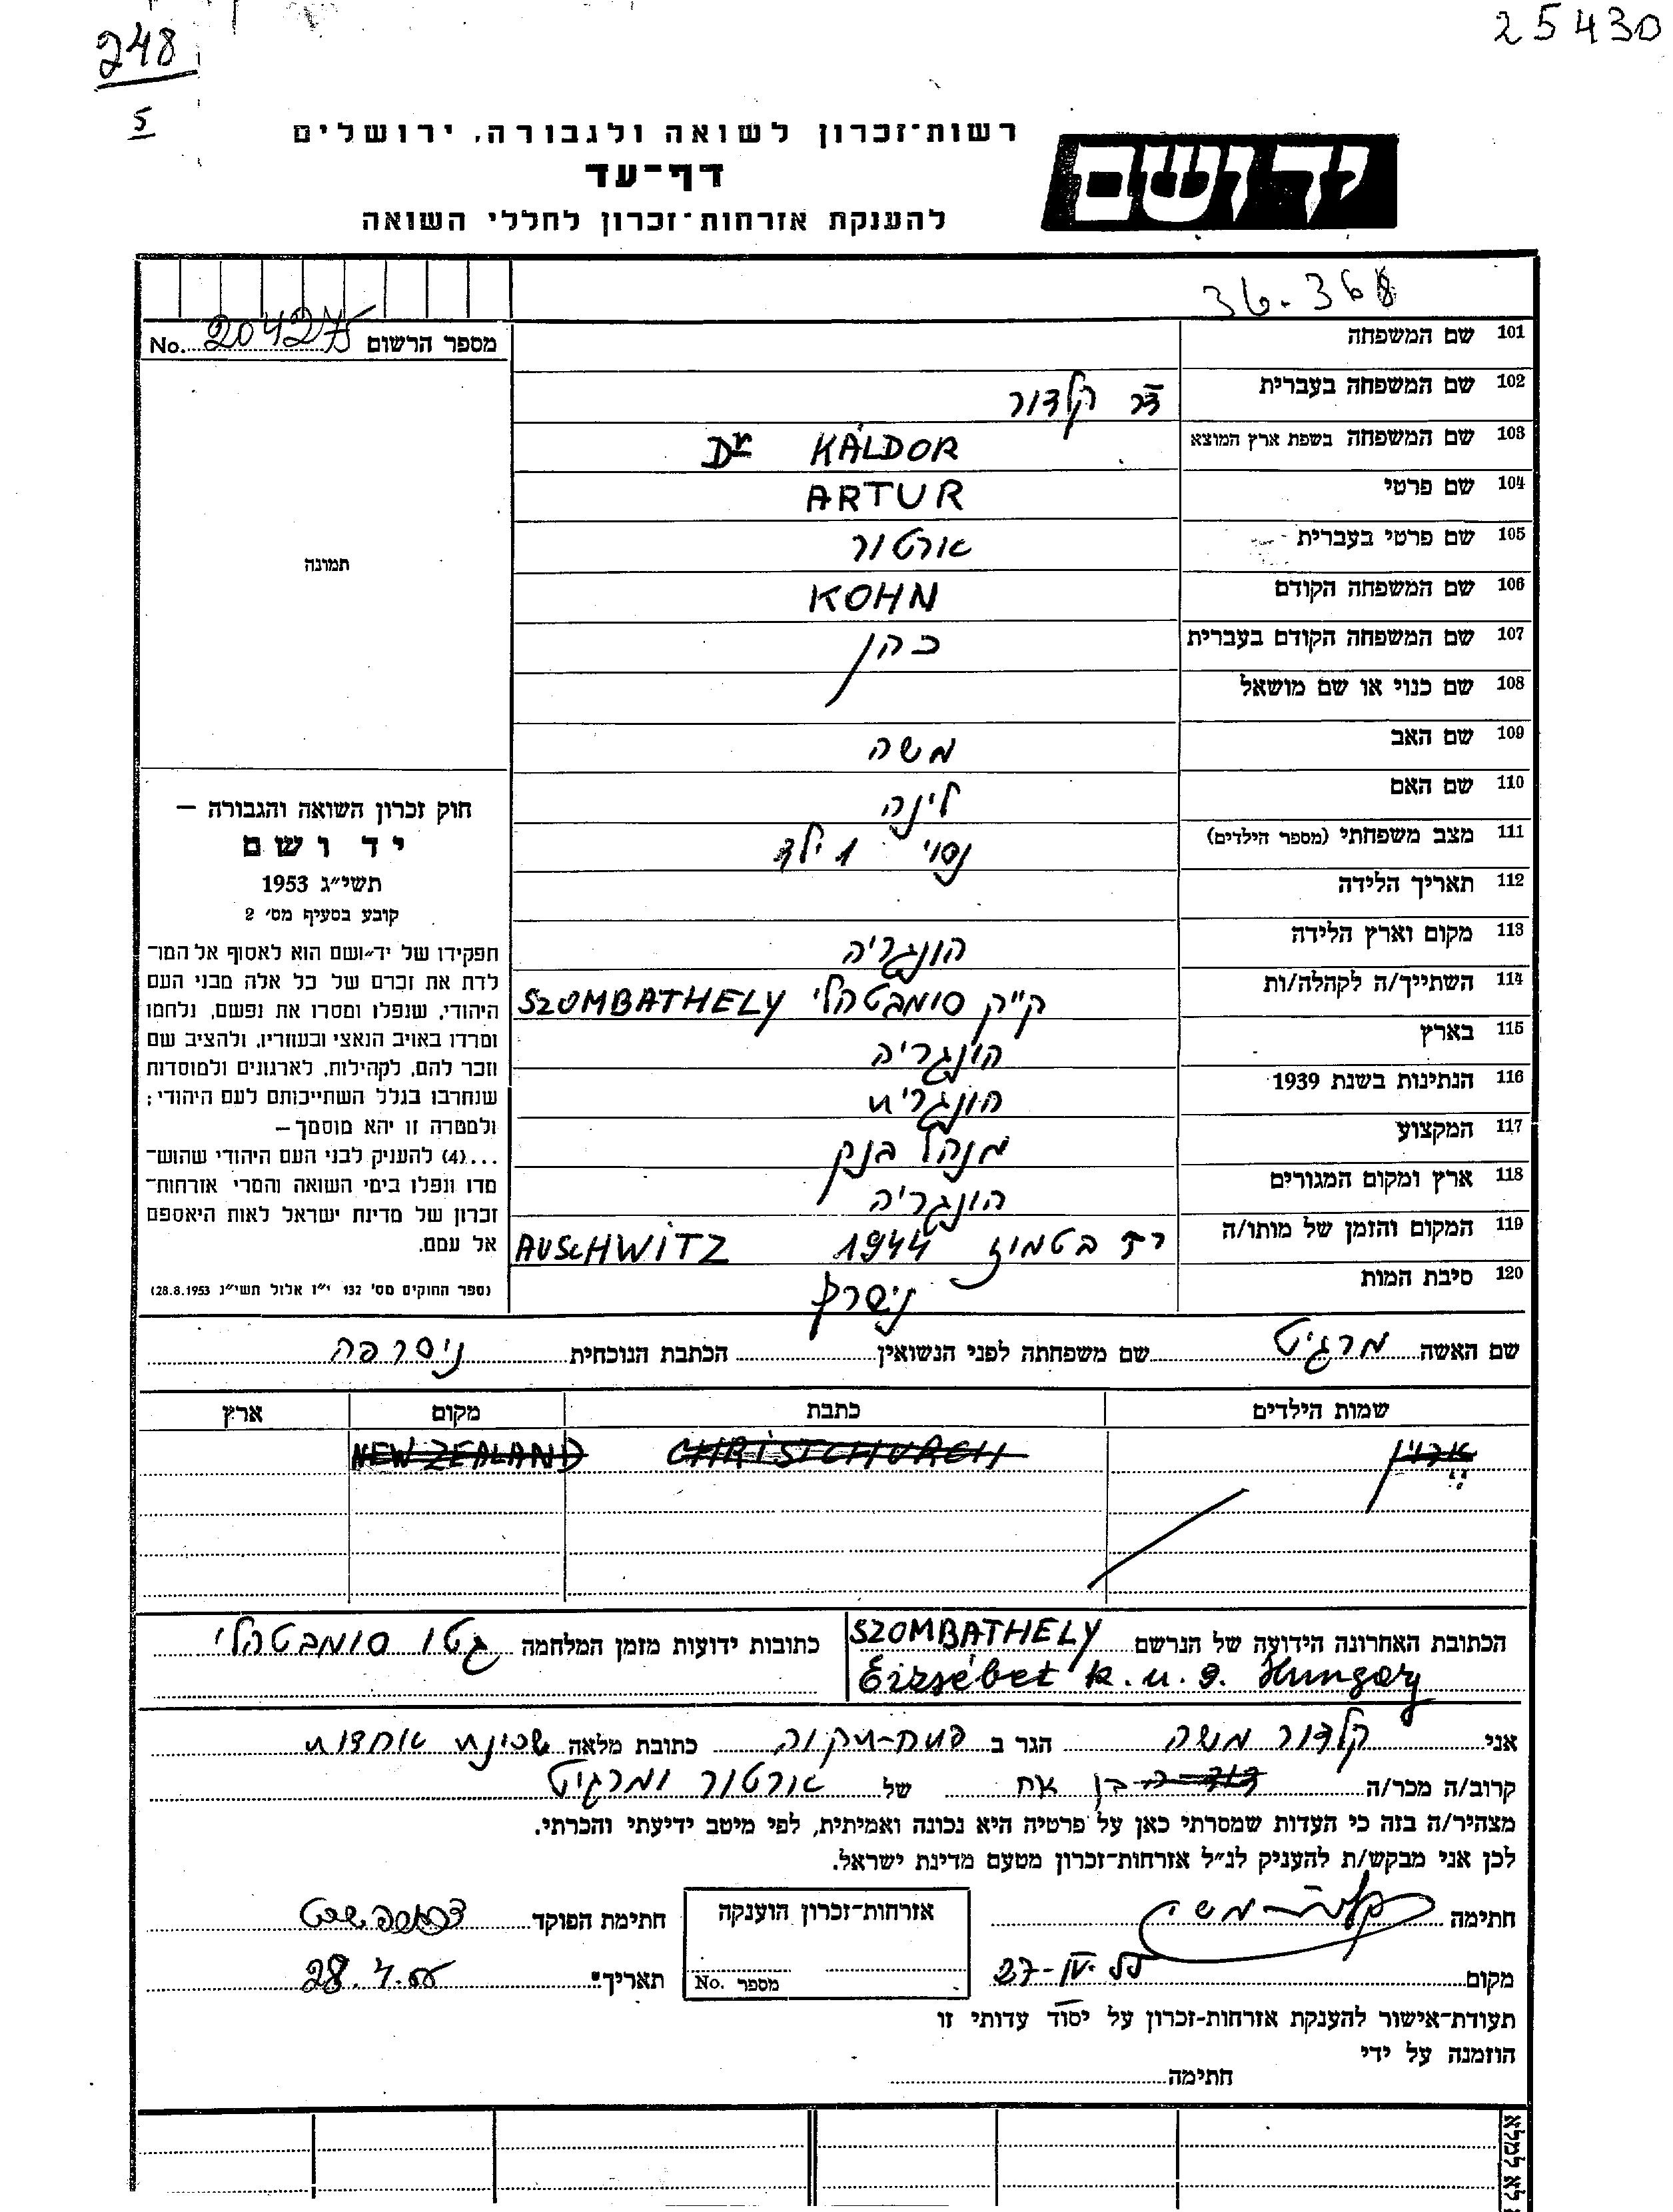 248
5
25430
רשות־זכרון לשואה ולגבורה, ירושלים
דף־עד
להענקת אזרחות־זכרון לחללי השואה
יד ושם
36-368
מספר הרשום 204275 No.
101 שם המשפחה
102 שם המשפחה בעברית דר קלדור
103 שם המשפחה בשפת ארץ המוצא Dr KÁLDOR
104 שם פרטי ARTUR
105 שם פרטי בעברית ארטור
106 שם המשפחה הקודם KOHN
107 שם המשפחה הקודם בעברית כהן
108 שם כנוי או שם מושאל
109 שם האב משה
110 שם האם לינה
111 מצב משפחתי (מספר הילדים) נסוי 1 ילד
112 תאריך הלידה
113 מקום וארץ הלידה הונגריה
114 השתייך/ה לקהלה/ות ק"ק סומבטהלי SZOMBATHELY
115 בארץ הונגריה
116 הנתינות בשנת 1939 הונגרית
117 המקצוע מנהל בנק
118 ארץ ומקום המגורים הונגריה
119 המקום והזמן של מותו/ה יד בטמוז 1944 AUSCHWITZ
120 סיבת המות נישרף
תמונה
חוק זכרון השואה והגבורה –
יד ושם
תשי״ג 1953
קובע בסעיף מס׳ 2
תפקידו של יד־ושם הוא לאסוף אל המו־
לדת את זכרם של כל אלה מבני העם
היהודי, שנפלו ומסרו את נפשם, נלחמו
ומרדו באויב הנאצי ובעוזריו, ולהציב שם
וזכר להם, לקהילות, לארגונים ולמוסדות
שנחרבו בגלל השתייכותם לעם היהודי;
ולמטרה זו יהא מוסמך –
...(4) להעניק לבני העם היהודי שהוש־
מדו ונפלו בימי השואה והמרי אזרחות־
זכרון של מדינת ישראל לאות היאספם
אל עמם.
(ספר החוקים מס׳ 132 י״ז אלול תשי״ג 28.8.1953)
שם האשה מרגיט שם משפחתה לפני הנשואין הכתבת הנוכחית ניסרפה
שמות הילדים כתבת מקום ארץ
ארוין CHRISTCHURCH NEW ZEALAND
הכתובת האחרונה הידועה של הנרשם SZOMBATHELY
Erzsébet k. u. 9. Hungary
כתובות ידועות מזמן המלחמה גטו סומבטהלי
אני קלדור משה הגר ב פתח-תקוה כתובת מלאה שכונת אחדות
קרוב/ה מכר/ה בן אח של ארטור ומרגיט
מצהיר/ה בזה כי העדות שמסרתי כאן על פרטיה היא נכונה ואמיתית, לפי מיטב ידיעתי והכרתי.
לכן אני מבקש/ת להעניק לנ״ל אזרחות־זכרון מטעם מדינת ישראל.
חתימה
אזרחות־זכרון הוענקה
חתימת הפוקד
מקום
מספר No.
תאריך
תעודת־אישור להענקת אזרחות־זכרון על יסוד עדותי זו
הוזמנה על ידי
חתימה